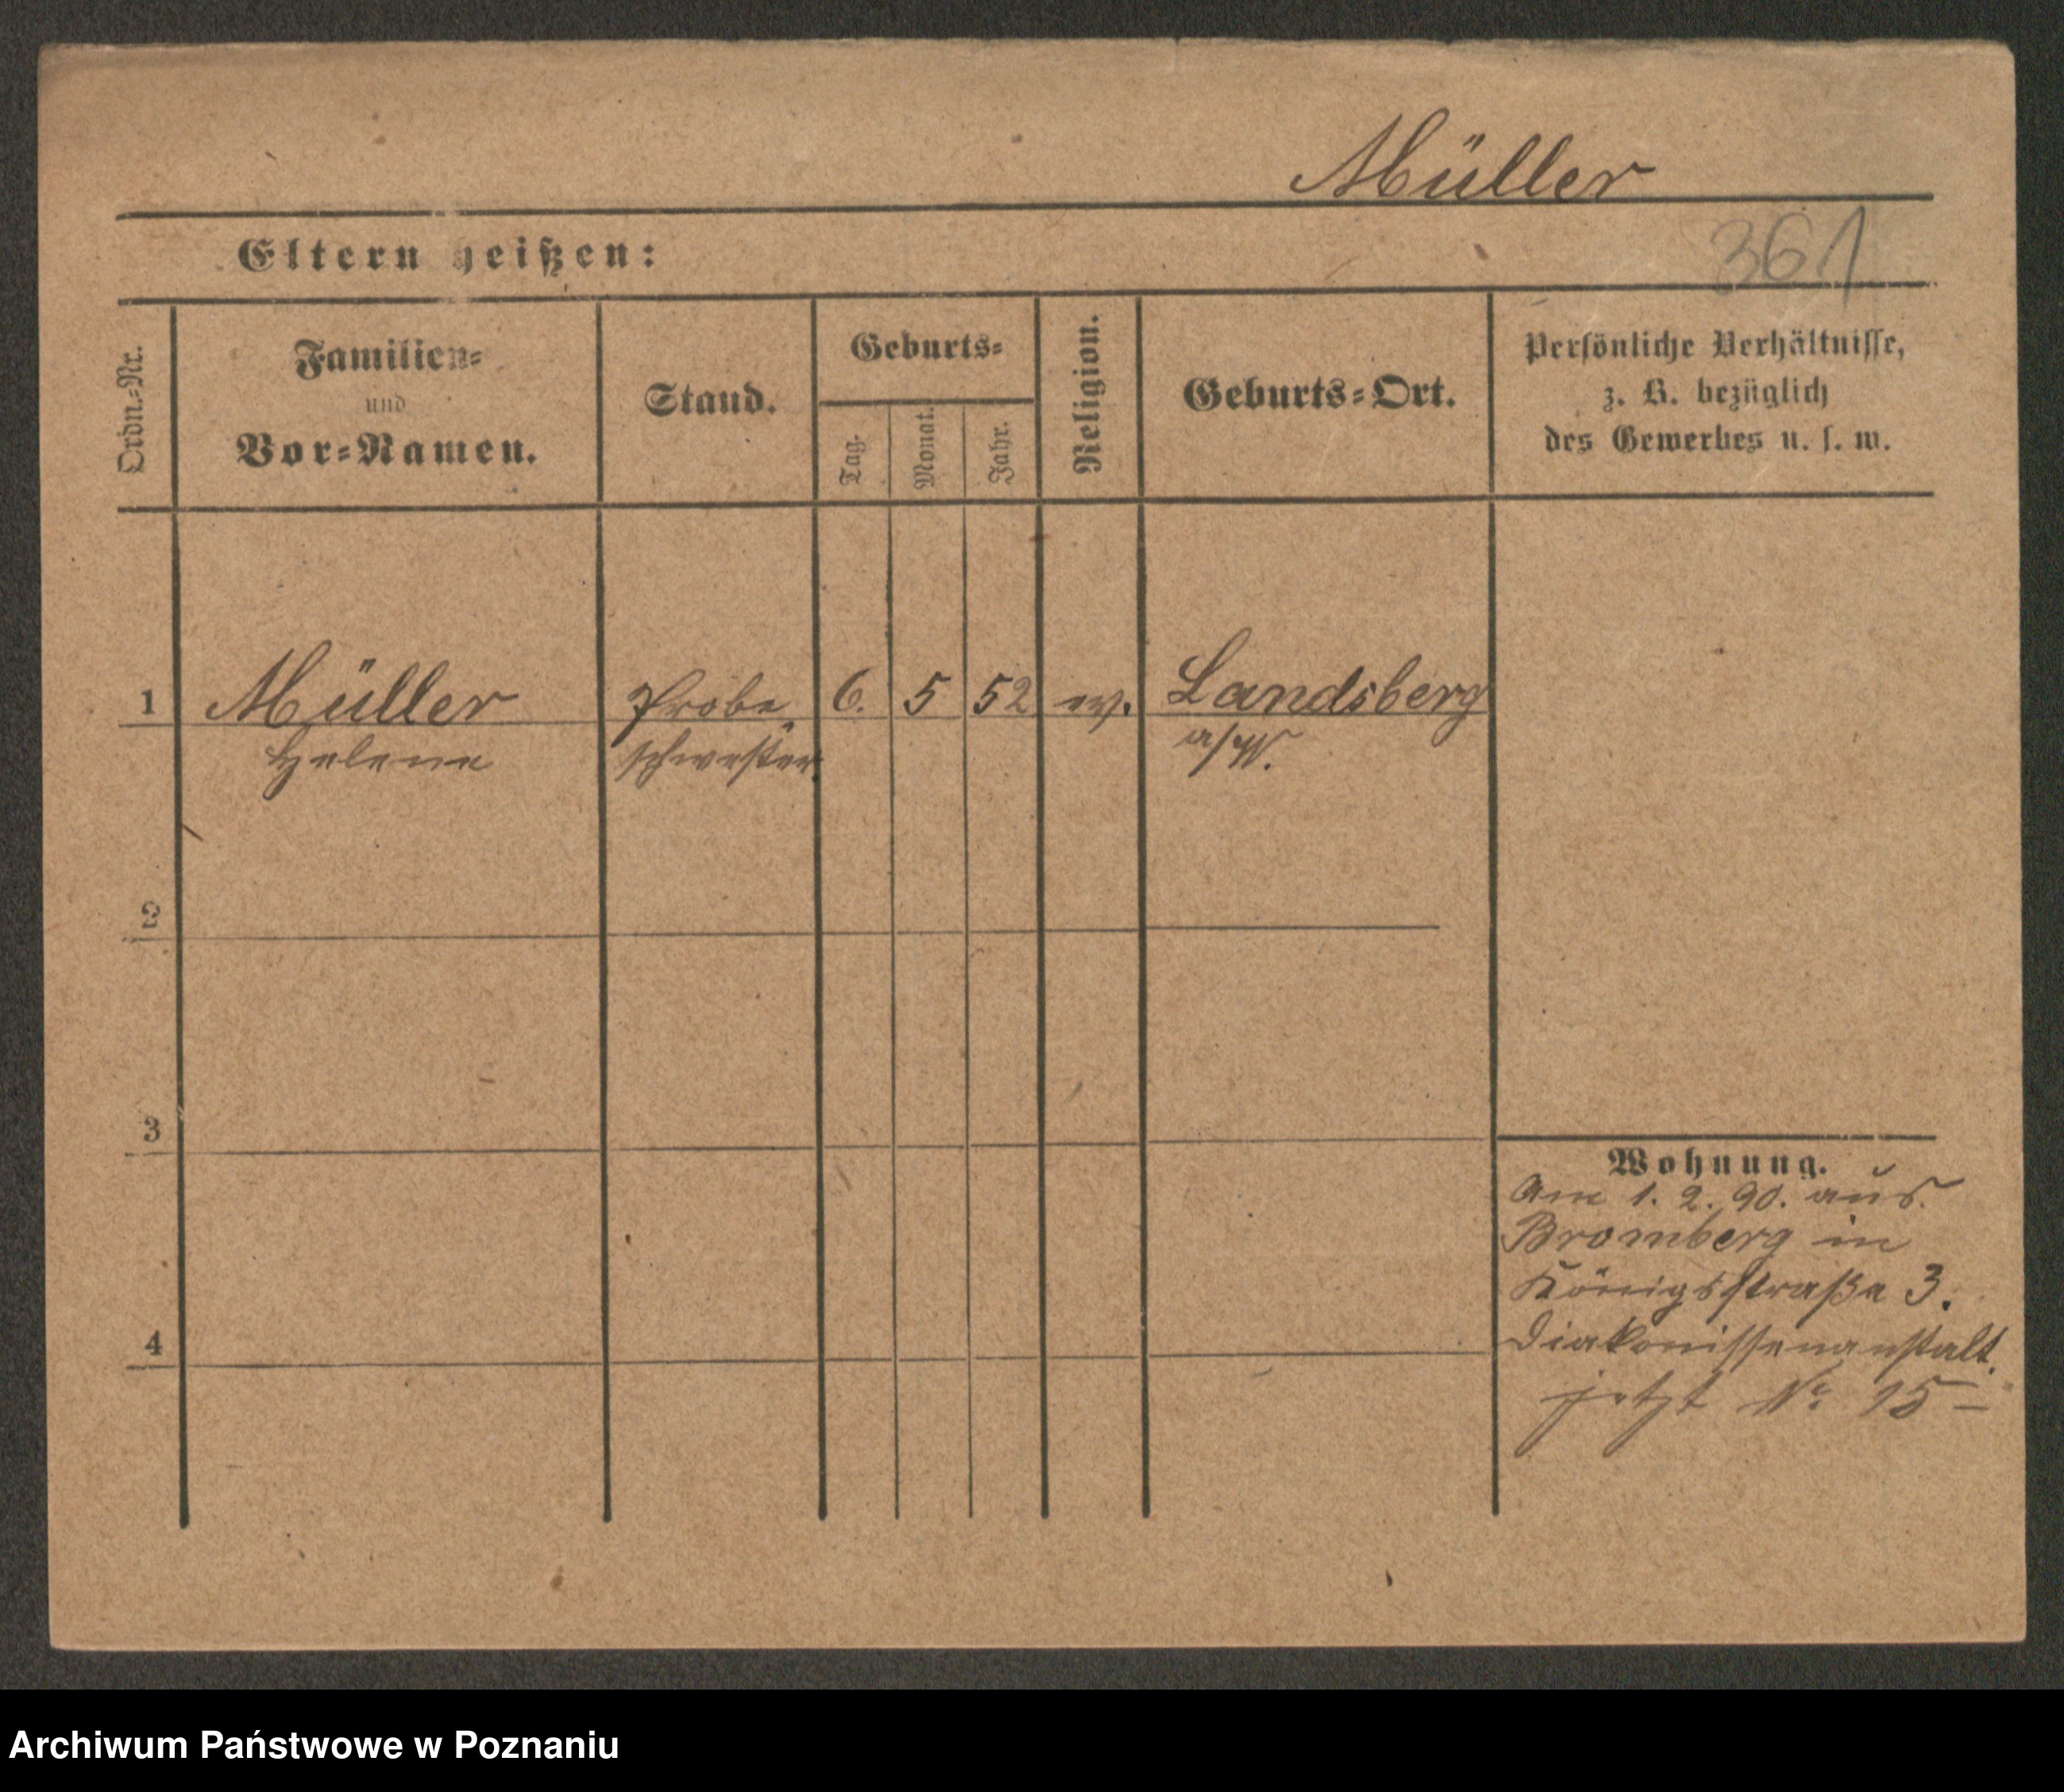 Müller
361
Eltern heißen:
Ordn.-Nr.
Familien-
und
Vor-Namen.
Stand.
Geburts-
Tag.
Monat.
Jahr.
Religion.
Geburts-Ort.
Persönliche Verhältnisse,
z. B. bezüglich
des Gewerbes u. s. w.
1 Müller Probe- 6. 5 52 ev. Landsberg
Helene schwester. a/W.
2
3
4
Wohnung.
Am 1. 2. 90. aus
Bromberg in
Königsstraße 3.
Diakonissenanstalt.
jetzt No 15 –
Archiwum Państwowe w Poznaniu